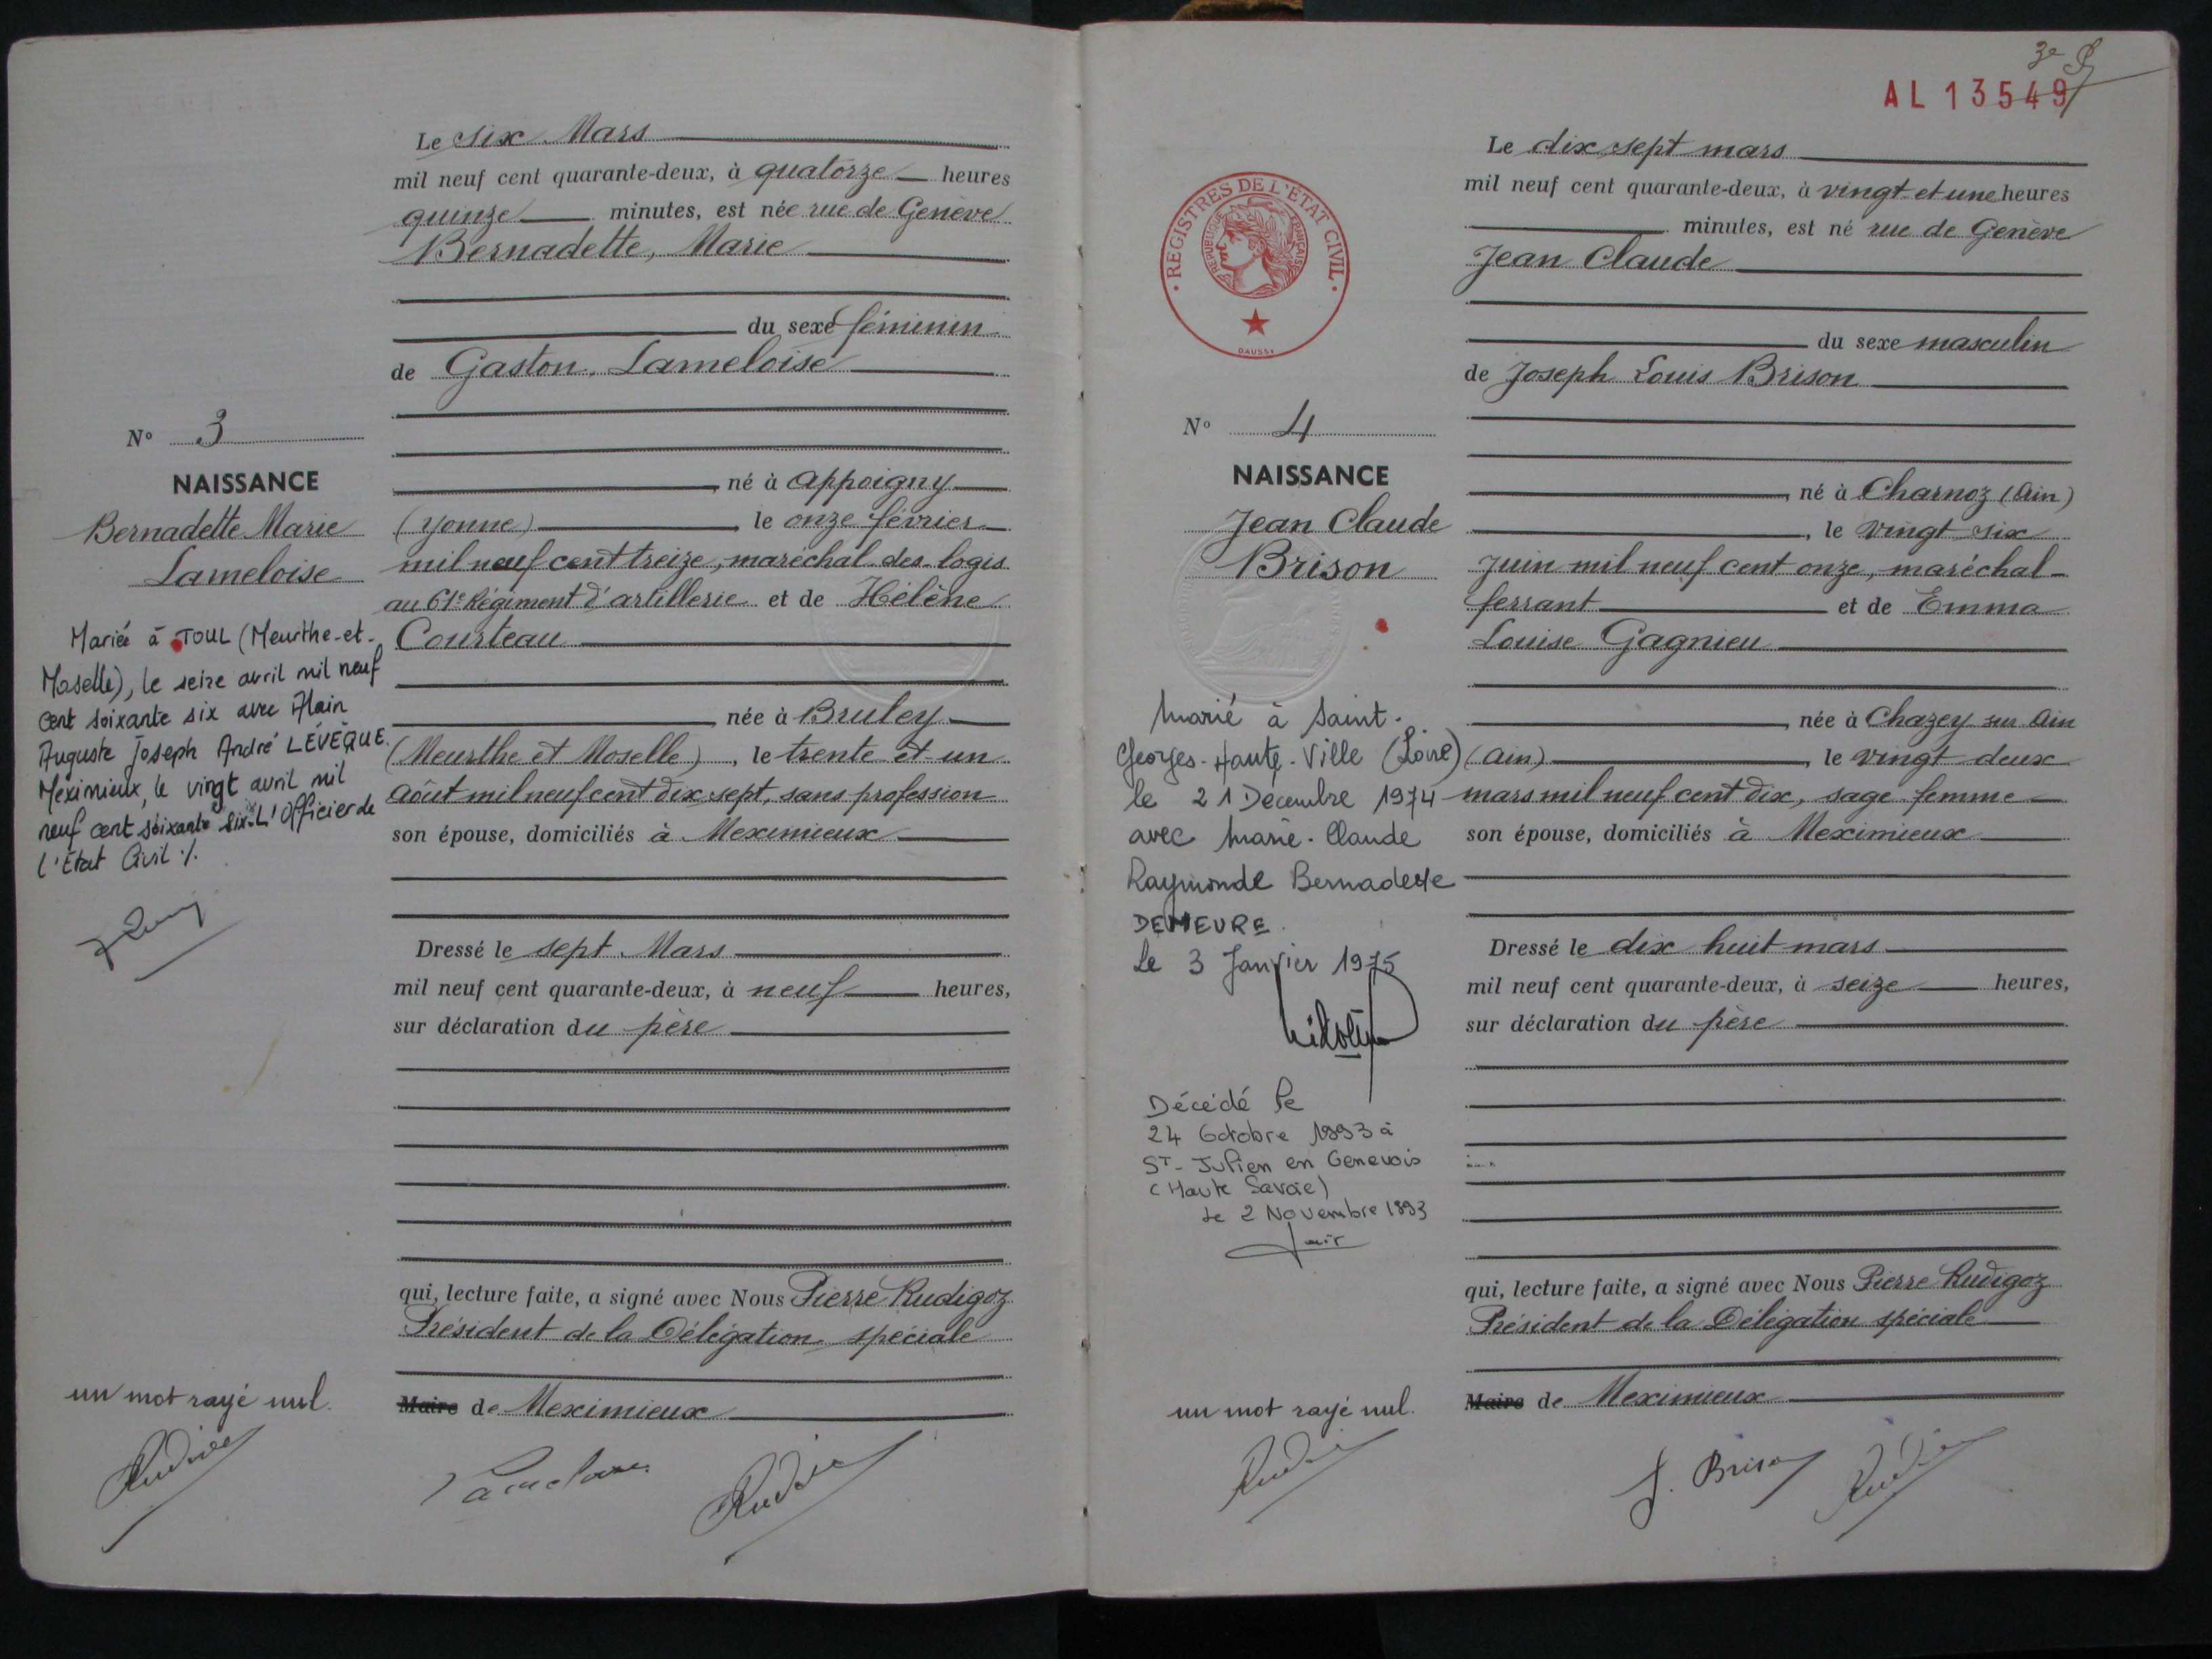 Le six Mars
mil neuf cent quarante-deux, à quatorze heures
quinze minutes, est née rue de Genève
Bernadette, Marie
du sexe féminin
de Gaston, Lameloise
N° 3
NAISSANCE
Bernadette Marie
Lameloise
né à Appoigny
(Yonne) le onze février
mil neuf cent treize, maréchal des logis
au 61e Régiment d'artillerie et de Hélène
Courteau
née à Bruley
(Meurthe et Moselle), le trente et un
Août mil neuf cent dix sept, sans profession
son épouse, domiciliés à Meximieux
Mariée à TOUL (Meurthe-et-
Moselle), le seize avril mil neuf
cent soixante six avec Alain
Auguste Joseph André LÉVÊQUE.
Meximieux, le vingt avril mil
neuf cent soixante six. L'Officier de
l'État Civil ./.
Dressé le sept Mars
mil neuf cent quarante-deux, à neuf heures,
sur déclaration du père
qui, lecture faite, a signé avec Nous Pierre Rudigoz
Président de la Délégation spéciale
Maire de Meximieux
un mot rayé nul.
Lameloise
3e
AL 13549
REGISTRES DE L'ÉTAT CIVIL
RÉPUBLIQUE FRANÇAISE
Le dix sept mars
mil neuf cent quarante-deux, à vingt et une heures
minutes, est né rue de Genève
Jean Claude
du sexe masculin
de Joseph Louis Brison
N° 4
NAISSANCE
Jean Claude
Brison
né à Charnoz (Ain)
, le vingt six
Juin mil neuf cent onze, maréchal-
ferrant et de Emma
Louise Gagnieu
, née à Chazey sur Ain
(Ain) , le vingt deux
mars mil neuf cent dix, sage femme
son épouse, domiciliés à Meximieux
Marié à Saint-
Georges-Haute-Ville (Loire)
le 21 Décembre 1974
avec Marie-Claude
Raymonde Bernadette
DEMEURE.
Le 3 Janvier 1975
Décédé le
24 Octobre 1993 à
ST-Julien en Genevois
(Haute Savoie)
Le 2 Novembre 1993
Dressé le dix huit mars
mil neuf cent quarante-deux, à seize heures,
sur déclaration du père
qui, lecture faite, a signé avec Nous Pierre Rudigoz
Président de la Délégation spéciale
Maire de Meximieux
un mot rayé nul.
J. Brison